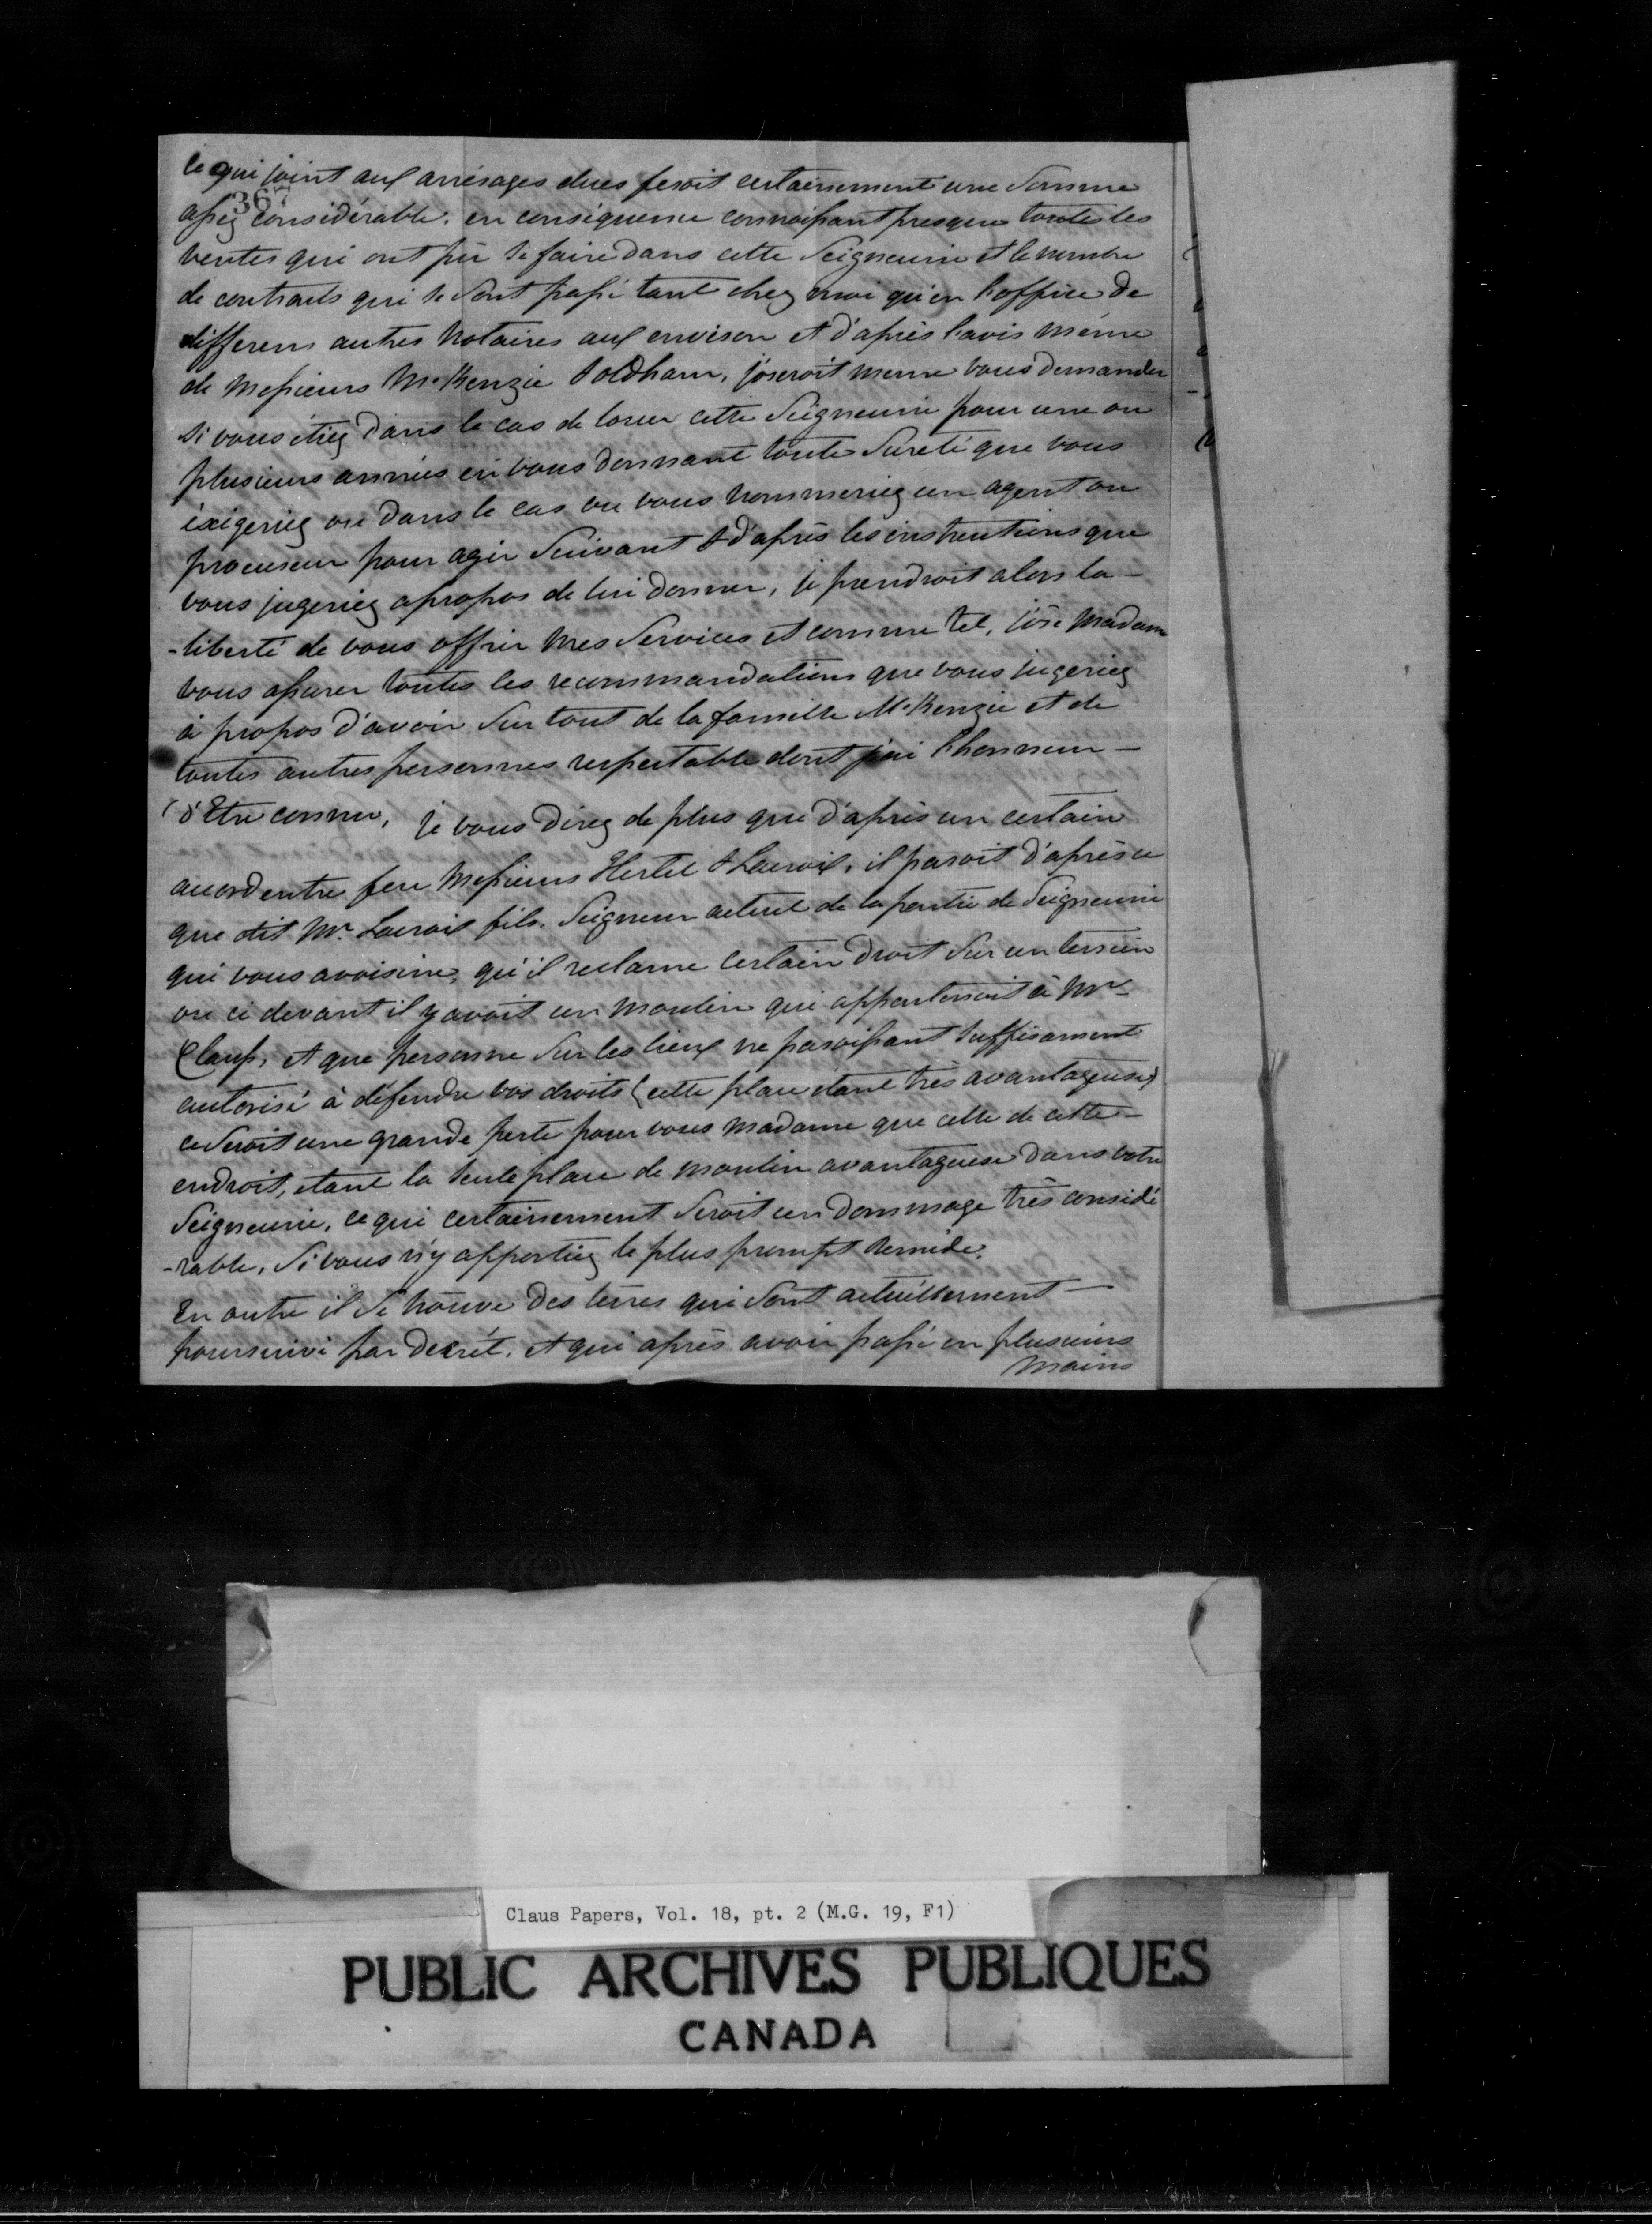 ce qui joint aux arrérages dues feroit certainement une Somme
367
assez considérable. en conséquence connoissant presque toutes les
ventes qui ont pû se faire dans cette Seigneurie et le nombre
de contrats qui se sont passé tant chez moi qu'en l'office de
differens autres Notaires aux environ et d'après l'avis même
de Messieurs McKenzie & Oldham, j'oserois meme vous demander
Si vous êtiez dans le cas de louer cette Seigneurie pour une ou
plusieurs années en vous donnant toute Sureté que vous
éxigeriez ou dans le cas ou vous nommeriez un agent ou
procureur pour agir Suivant & d'après les instructions que
vous jugeriez apropos de lui donner, je prendroit alors la -
-liberté de vous offrir mes Services et comme tel, j'ose Madame
vous assurer toutes les recommandations que vous jugeriez
à propos d'avoir Sur tout de la famille McKenzie et de
toutes autres personnes respectable dont j'ai l'honneur -
d'Etre connu, je vous direz de plus que d'après un certain
accord entre feu Messieurs Hertel & Lacroix, il paroit d'après ce
que dit Mr. Lacroix fils. Seigneur actuel de la partie de Seigneurie
qui vous avoisine, qu'il reclame certain droit Sur un terrein
ou ci devant il y avoit un moulin qui appartenoit à Mr
Clauss, et que personne Sur les lieux ne paroissant suffisament
autorisé à défendre vos droits (cette place étant très avantageuse)
ce Seroit une grande perte pour vous madame que celle de cette -
endroit, etant la seule place de moulin avantageuse dans votre
Seigneurie, ce qui certainement Seroit un dommage très considé
-rable, Si vous n'y apportiez le plus prompt remède.
En outre il Se trouve des terres qui Sont actuellement -
poursuivi par Decrét. et qui après avoir passé en plusieurs
mains
Claus Papers, Vol. 18, pt. 2 (M.G. 19, F1)
PUBLIC ARCHIVES PUBLIQUES
CANADA